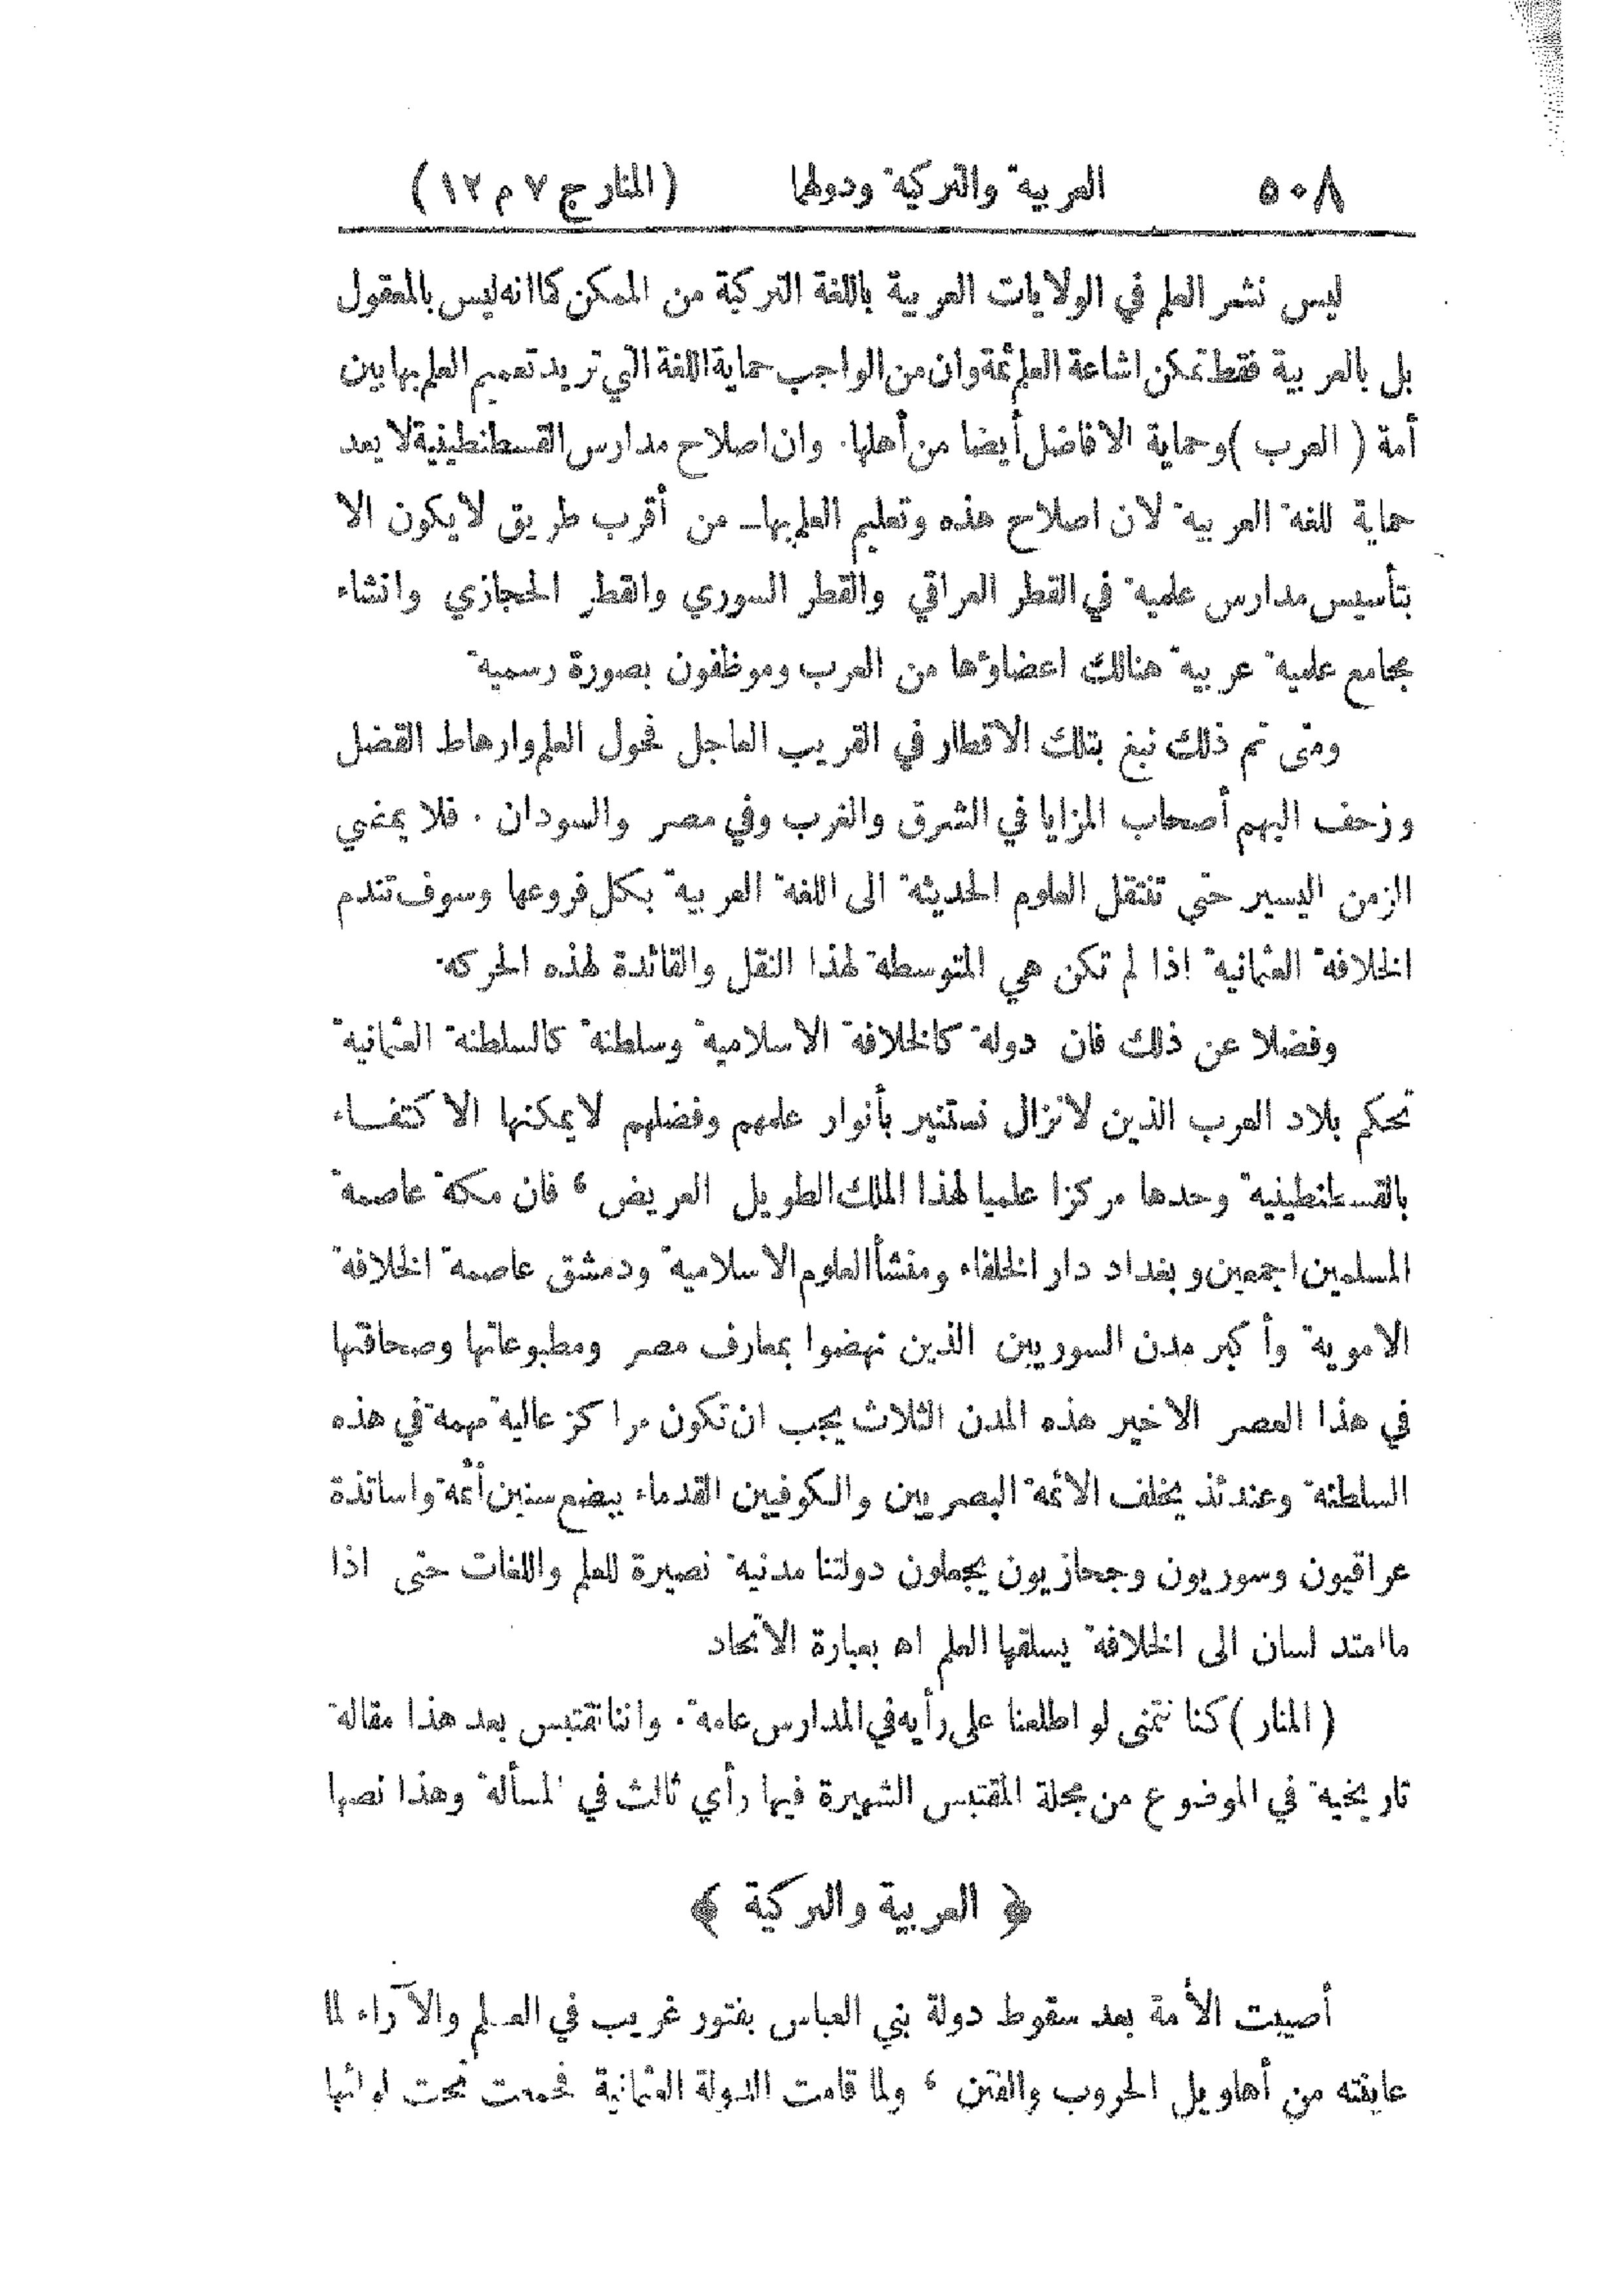 ٥٠٨ العربية والتركية ودولهما (المنار ج ٧ م ١٢)
ليس نشر العلم في الولايات العربية باللغة التركية من الممكن كما انه ليس بالمعقول
بل بالعربية فقط تمكن اشاعة العلم ثمة وان من الواجب حماية اللغة التي تريد تعميم العلم بها بين
أمة ( العرب ) وحماية الافاضل أيضا من أهلها. وان اصلاح مدارس القسطنطينية لا يعد
حماية للغة العربية لان اصلاح هذه وتعليم العلم بها ــ من أقرب طريق لا يكون الا
بتأسيس مدارس علمية في القطر العراقي والقطر السوري والقطر الحجازي وانشاء
مجامع علمية عربية هنالك اعضاؤها من العرب وموظفون بصورة رسمية
ومتى تم ذلك نبغ بتلك الاقطار في القريب العاجل فحول العلم وارهاط الفضل
وزحف اليهم أصحاب المزايا في الشرق والغرب وفي مصر والسودان . فلا يمضي
الزمن اليسير حتى تنتقل العلوم الحديثة الى اللغة العربية بكل فروعها وسوف تندم
الخلافة العثمانية اذا لم تكن هي المتوسطة لهذا النقل والقائدة لهذه الحركة.
وفضلا عن ذلك فان دولة كالخلافة الاسلامية وسلطنة كالسلطنة العثمانية
تحكم بلاد العرب الذين لا نزال نستنير بأنوار علمهم وفضلهم لا يمكنها الاكتفاء
بالقسطنطينية وحدها مركزا علميا لهذا الملك الطويل العريض ، فان مكة عاصمة
المسلمين اجمعين وبغداد دار الخلفاء ومنشأ العلوم الاسلامية ودمشق عاصمة الخلافة
الاموية وأكبر مدن السوريين الذين نهضوا بمعارف مصر ومطبوعاتها وصحافتها
في هذا العصر الاخير هذه المدن الثلاث يجب ان تكون مراكز عالية مهمة في هذه
السلطنة وعندئذ يخلف الائمة البصريين والكوفيين القدماء ببضع سنين أئمة واساتذة
عراقيون وسوريون وحجازيون يجعلون دولتنا مدنية نصيرة للعلم واللغات حتى اذا
ما امتد لسان الى الخلافة يسلقها العلم اه بعبارة الاتحاد
( المنار ) كنا نتمنى لو اطلعنا على رأيه في المدارس عامة . واننا نقتبس بعد هذا مقالة
تاريخية في الموضوع من مجلة المقتبس الشهيرة فيها رأي ثالث في المسألة وهذا نصها
﴿ العربية والتركية ﴾
أصيبت الأمة بعد سقوط دولة بني العباس بفتور غريب في العلم والآراء لما
عاينته من أهاويل الحروب والفتن ، ولما قامت الدولة العثمانية فجمعت تحت لوائها